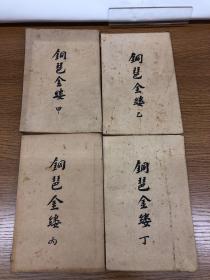 銅琶金縷 甲
銅琶金縷 乙
銅琶金縷 丙
銅琶金縷 丁